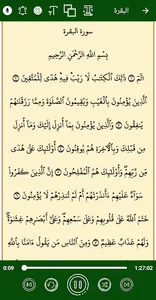 البقرة
سورة البقرة
بِسْمِ اللَّهِ الرَّحْمَٰنِ الرَّحِيمِ
الٓمٓ ۝ ذَٰلِكَ ٱلْكِتَٰبُ لَا رَيْبَ فِيهِ هُدًى لِّلْمُتَّقِينَ ۝
ٱلَّذِينَ يُؤْمِنُونَ بِٱلْغَيْبِ وَيُقِيمُونَ ٱلصَّلَوٰةَ وَمِمَّا رَزَقْنَٰهُمْ
يُنفِقُونَ ۝ وَٱلَّذِينَ يُؤْمِنُونَ بِمَآ أُنزِلَ إِلَيْكَ وَمَآ أُنزِلَ
مِن قَبْلِكَ وَبِٱلْأَخِرَةِ هُمْ يُوقِنُونَ ۝ أُو۟لَٰٓئِكَ عَلَىٰ هُدًى
مِّن رَّبِّهِمْ ۖ وَأُو۟لَٰٓئِكَ هُمُ ٱلْمُفْلِحُونَ ۝ إِنَّ ٱلَّذِينَ كَفَرُوا۟
سَوَآءٌ عَلَيْهِمْ ءَأَنذَرْتَهُمْ أَمْ لَمْ تُنذِرْهُمْ لَا يُؤْمِنُونَ ۝
خَتَمَ ٱللَّهُ عَلَىٰ قُلُوبِهِمْ وَعَلَىٰ سَمْعِهِمْ ۖ وَعَلَىٰٓ أَبْصَٰرِهِمْ غِشَٰوَةٌ ۖ
وَلَهُمْ عَذَابٌ عَظِيمٌ ۝ وَمِنَ ٱلنَّاسِ مَن يَقُولُ ءَامَنَّا بِٱللَّهِ
0:09 1:27:02